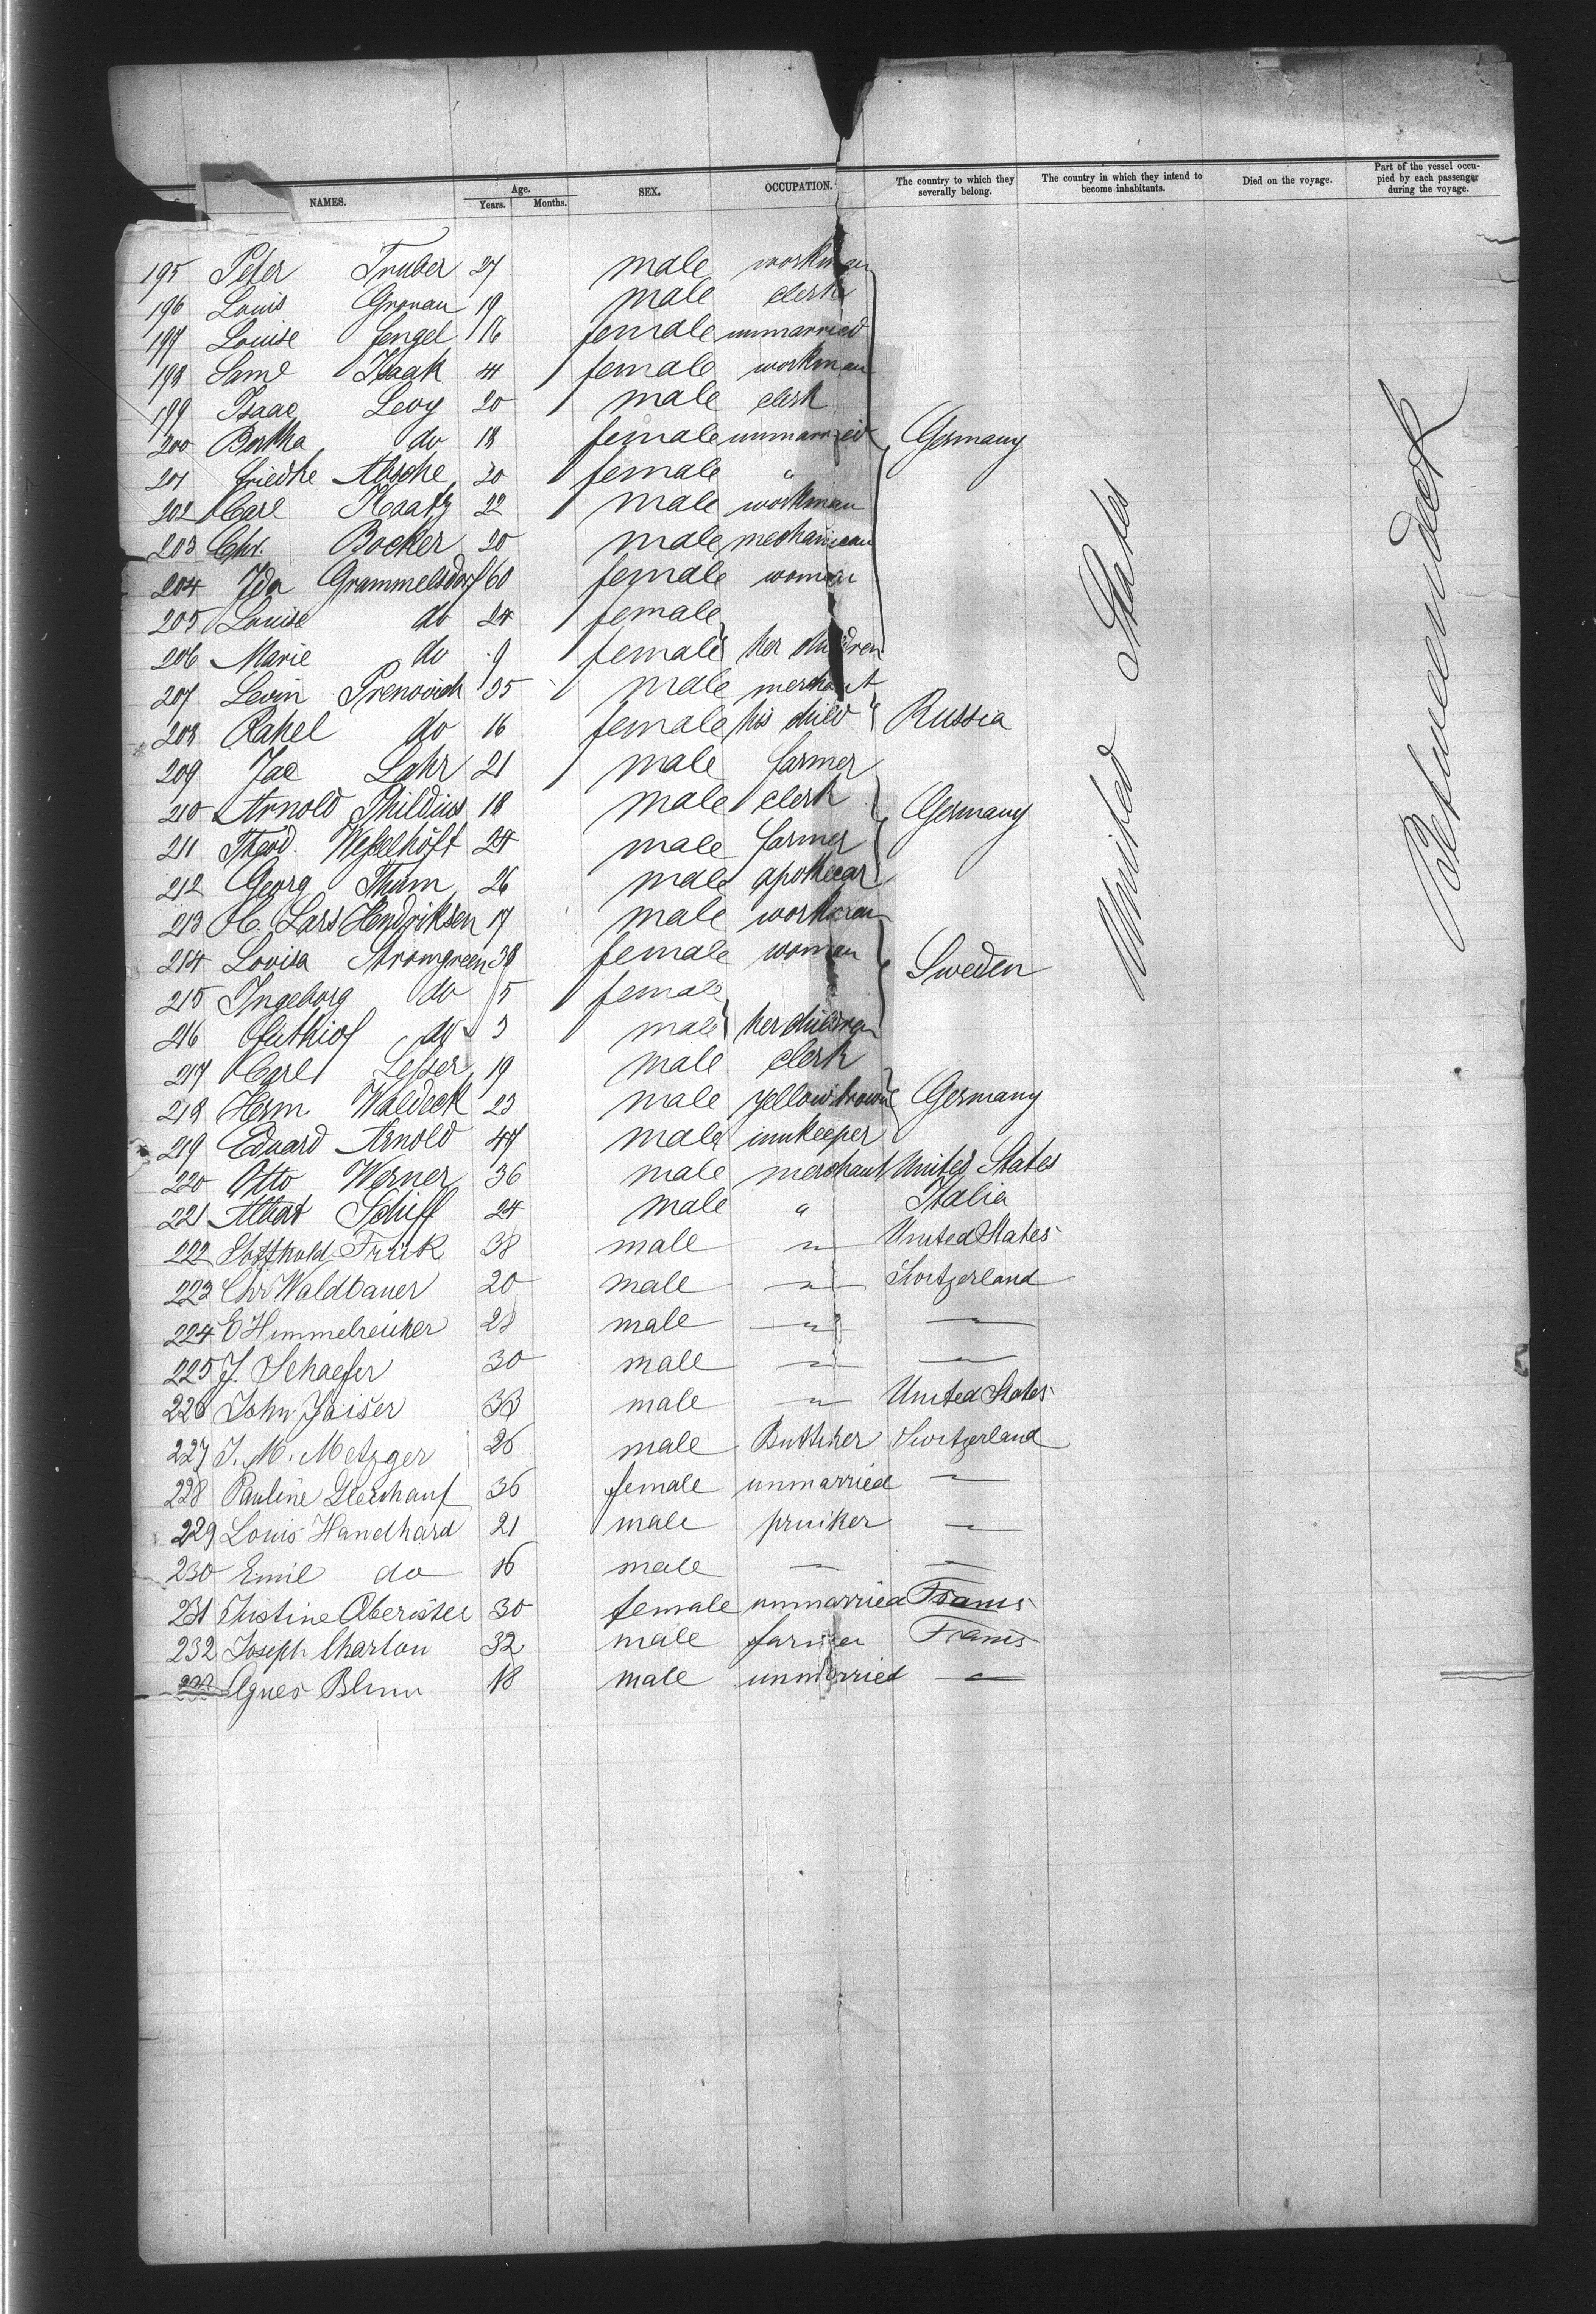 NAMES. Age. Years. Months. SEX. OCCUPATION. The country to which they severally belong. The country in which they intend to become inhabitants. Died on the voyage. Part of the vessel occupied by each passenger during the voyage.
195 Peter Truber 27 male workman
196 Louis Gronau 19 male clerk
197 Louise Jengel 16 female unmarried
198 Isaak female workman
199 Isaac Levy 20 male clerk
200 Bertha do 18 female unmarried Germany
201 20 female "
202 Carl Kaatz 22 male workman
203 Chr. Bocker 20 male mechanican
204 Ida Grammelsdorf 60 female woman
205 Louise do 24 female
206 Marie do 9 female her children
207 Levin Prenovich 35 male merchant
208 Rahel do 16 female his child Russia
209 Jac Lahr 21 male farmer
210 Arnold Thildius 18 male clerk Germany
211 Theod. Weßelhöft 24 male farmer
212 Georg Thum 26 male apothecar
213 C. Lars Hendriksen 17 male workman
214 Lovisa Stromgreen 38 female woman Sweden
215 Ingeborg do 5 female
216 do 3 male her children
217 Carl Leßer 19 male clerk
218 Herm. Waldeck 23 male Germany
219 Eduard Arnold 47 male innkeeper
220 Otto Werner 36 male merchant United States
221 Albert Schiff 24 male " Italia
222 38 male " United States
223 Chr Waldbauer 20 male " Switzerland
224 E Himmelreicher 28 male " "
225 J. Schaefer 30 male " "
226 John Jaiser 33 male " United States
227 J. M. Metzger 26 male Buttcher Switzerland
228 Pauline 36 female unmarried "
229 Louis Handhard 21 male "
230 Emil do 16 male " "
231 30 female unmarried Frans
232 Joseph Charton 32 male farmer Frans
Agnes Blum 18 male unmarried "
United States
Betweendeck